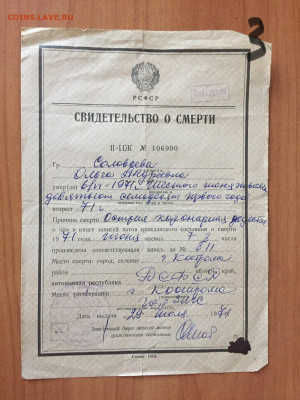 COINS.SS.LAW
3
РСФСР
СВИДЕТЕЛЬСТВО О СМЕРТИ
II-ЦЖ № 106990
Гр. Соловьева
Ольга Андреевна
умер(ла) 6/VI-1971. Шестого июня тысяча
девятьсот семьдесят первого года
возраст 71 г.
Причина смерти Острая коронарная
о чем в книге записей актов гражданского состояния о смерти
1971 года июня месяца 7 числа
произведена соответствующая запись за № 811
Место смерти: город, селение г. Кострома
район область, край,
автономная республика РСФСР
Место регистрации г. Кострома
ЗАГС
Дата выдачи 29 июля 197
Заведующий бюро записей актов
гражданского состояния